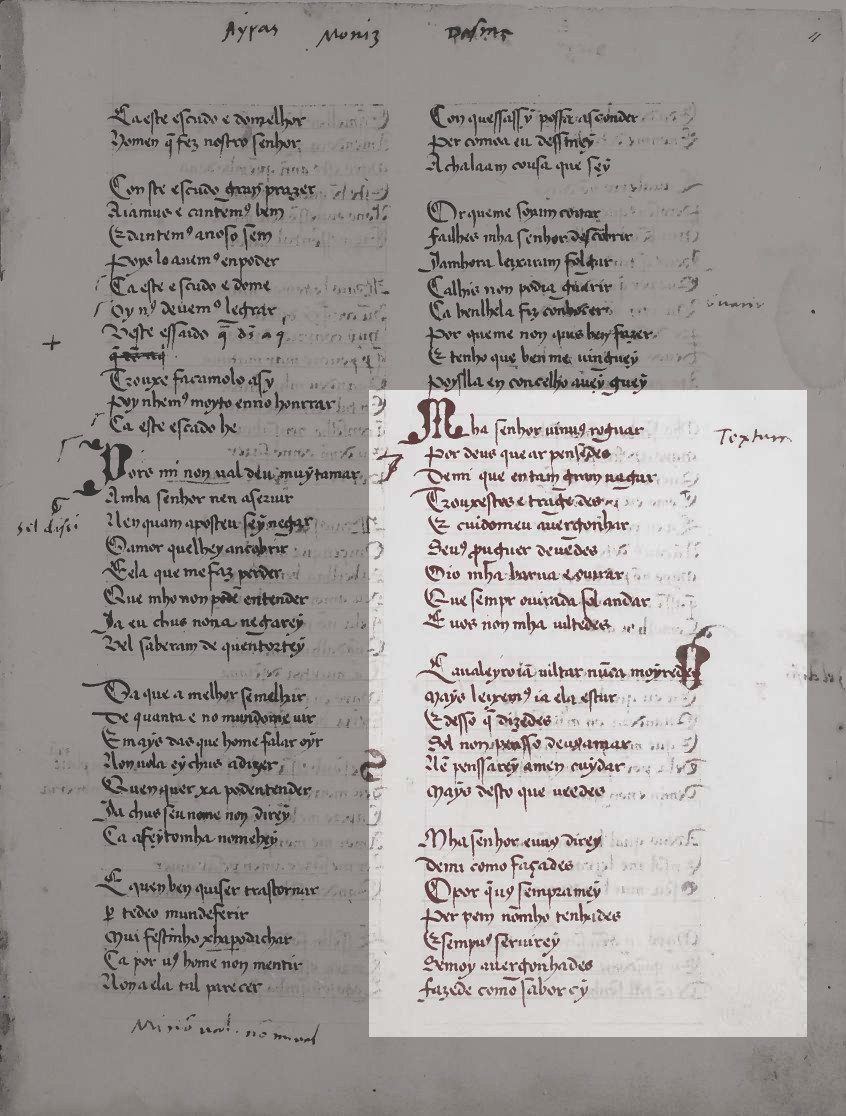 Ca este escudo e domelhor
Homen q̄ fez nostro senhor
Con ste escudo gram prazer
Aiamus e cantem⁹ bem
E dantem⁹ anoso sem
Poys lo auem⁹ en poder
Ca este escudo e dome
Oy n⁹ deuem⁹ legrar
Deste escudo q̄ ds̄ aq
Trouxe facamolo asy
Poynhem⁹ moyto en no honrrar
Ca este escudo he
Poys mi non ual deu muyt amar
Amha senhor nen a seruir
Nen quam aposteu sey negar
O amor que lhey an cobrir
E ela que me faz perder
Que mho non podē entender
Ia eu chus nona negarey
Vel saberam de quen tortey
Da que a melhor semelhar
De quanta e no mundome uir
E mays das que home falar oyr
Non uola ey chus a dizer
Quen quer xa pod entender
Ia chus seu nome non direy
Ca afeyto mha nomehey
E quen ben quiser trastornar
per tedeo mundeferir
Mui festinho xha podachar
Ca por u⁹ home non mentir
Non a ela tal parecer
Con quessassy possa asconder
Per comoa eu dessiney
Achalaam cousa que sey
Or que me soyam coitar
Failhes mha senhor descobrir
Iamhora leixaram folgar
Ca lhis non podia guarir
Ca ben lhela fiz conhocer
Por que me non quis ben fazer
E tenho que ben me uinguey
Poys lla en concelho auey guey
Mha senhor uinu⁹ roguar
Por deus que ar pensedes
Demi que en tam gram uagar
Trouxestes e tragedes
E cuidomeu auergonhar
Seu⁹ prouguer deuedes
Oio mh̄a barua e ourar
Que sempr ouirada sol andar
E uos non mha uiltedes
Caualeyro ia uiltar nūca moyredes
Mays leixem⁹ ia ela estar
E desso q̄ dizedes
Sol non penso deuxamar
Nē penssarey amen cuydar
Mays desto que ueedes
Mha senhor euu⁹ direy
Demi como façades
O por q̄ u⁹ sempr amey
Per rem nōmho tenhades
E sempu⁹ seruirey
Semoy auergonhades
Fazede como sabor ey